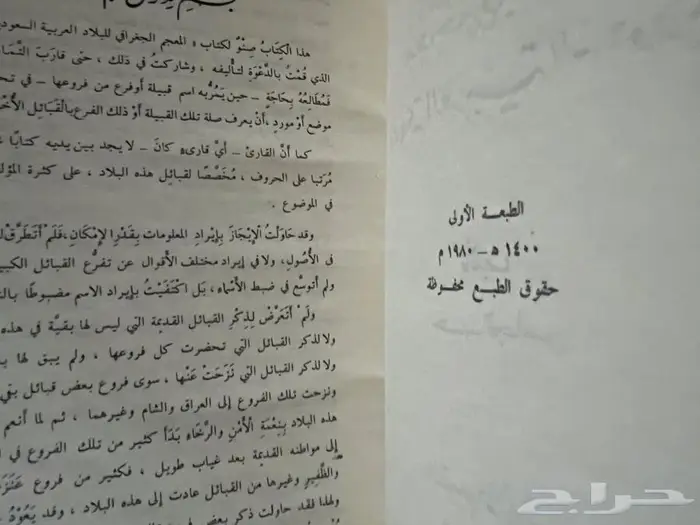 الطبعة الأولى
١٤٠٠ هـ – ١٩٨٠ م
حقوق الطبع محفوظة
هذا الْكِتَابُ صِنْوٌ لكتاب « المعجم الجغرافي للبلاد العربية السعودي
الذي قُمْتُ بالدَّعْوَةِ لتأليفه ، وشاركتُ في ذلك ، حتى قارَبَ التَّمَا
فَمُطَالِعُهُ بِحَاجَةٍ – حين يَمُرُّ به اسم قبيلة أوفرع من فروعها – في تح
موضع أوْ موردٍ ، أنْ يعرف صلة تلك القبيلة أوْ ذلك الفرع بالْقَبَائل الأُخْ
كما أنَّ القارئ – أيَّ قارىءٍ كانَ – لا يجد بين يديه كتابًا
مُرَتبا على الحروف ، مُخَصَّصًا لقبائل هذه البلاد ، على كثرة المؤل
في الموضوع .
وقد حَاوَلْتُ الْإِيْجَازَ بِإِيْرادِ المعلومات بِقَدْرِ الإِمْكَانِ ، فَلَمْ أَتَطَرَّقْ
في الأُصُولِ ، ولا في إيراد مختلف الأقوال عن تفرُّع القبائل الكبير
ولم أتوسَّع في ضبط الأسْماء ، بَلْ اكْتَفَيْتُ بإيراد الاسم مضبوطًا بالـ
ولَمْ أتَعَرَّضْ لِذِكْرِ القبائل القديمة التي ليس لها بقيَّة في هذه
ولا لذكر القبائل التي تحضرت كل فروعها ، ولم يبق لها با
ولا لذكر القبائل التي نَزَحَتْ عَنْها ، سوى فروع بعض قبائل بقي
ونزحت تلك الفروع إلى العراق والشام وغيرهما ، ثم لما أنعم
هذه البلاد بِنِعْمَةِ الْأَمْنِ والرَّخَاءِ بَدَأَ كثير من تلك الفروع في ا
إلى مواطنه القديمة بعد غياب طويل ، فكثير من فروع عَنَزَة
والظَّفِيْرِ وغيرها من القبائل عادت إلى هذه البلاد ، وقد يَعُوْدُ
ولهذا فقد حاولت ذكر بعض
حراج